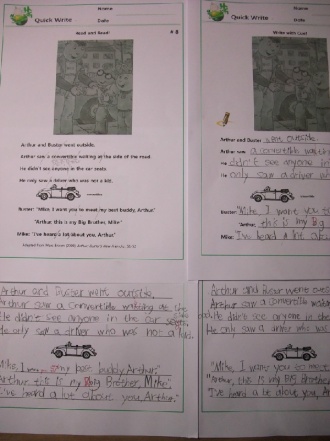 Quick Write
Name
Date
Read and Read!
# 8
Arthur and Buster went outside.
Arthur saw a convertible waiting at the side of the road.
He didn't see anyone in the car seats.
He only saw a driver who was not a kid.
Buster: "Mike, I want you to meet my best buddy, Arthur."
"Arthur, this is my Big Brother, Mike."
Mike: "I've heard a lot about you, Arthur."
Quick Write
Name
Date
Arthur and Buster went outside.
Arthur saw a convertible waiting
He didn't see anyone in
He only saw a driver who
Buster: "Mike, I want you to
"Arthur, this is my Big
Mike: "I've heard a lot about
Arthur and Buster went outside.
Arthur saw a convertible waiting at the
He didn't see anyone in the car seats.
He only saw a driver who was not a kid.
"Mike, I my best buddy, Arthur."
"Arthur, this is my Big Brother, Mike."
"I've heard a lot about you, Arthur."
Arthur and Buster went outside.
Arthur saw a convertible
He didn't see anyone in the
He only saw a driver who was
"Mike, I want you to meet
"Arthur, this is my BIG Brother
"I've heard a lot about you,